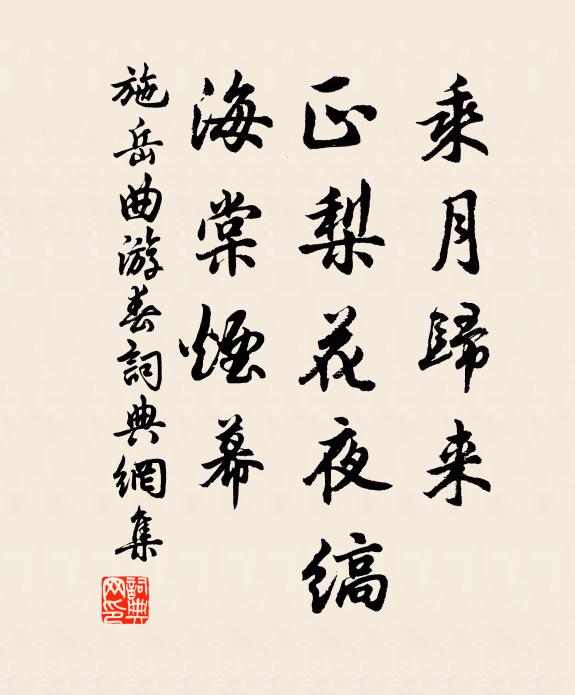 乘月歸来
正梨花夜縞
海棠煙幕
施岳曲游春詞典網集
詞典網印